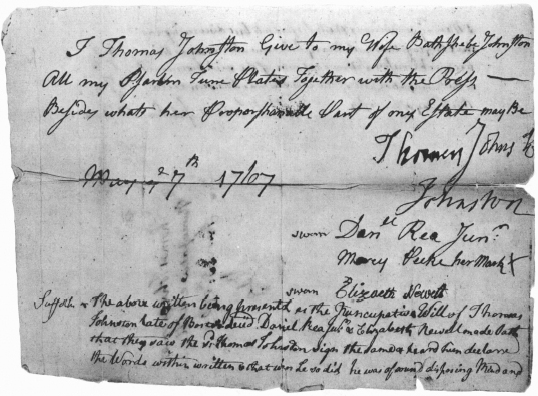 I Thomas Johnston Give to my Wife Bathsheba Johnston
All my Psalm Tune Plates Together with the Press —
Besides whats her Proporshanable Part of my Estate may Be
Thomas Johns
Johnston
May 7th 1767
sworn Danel Rea Junr
Marcy Peeke her Mark X
sworn Elizaeth Newell
Suffolk The above written being presented as the Nuncupative Will of Thomas
Johnston late of Boston decd Daniel Rea junr & Elizabeth Newell made Oath
that they saw the sd Thomas Johnston sign the same & heard him declare
the Words within written & that when he so did he was of sound disposing Mind and